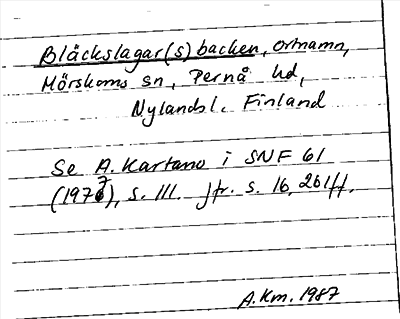 Bläckslagar(s)backen, ortnamn,
Mörskoms sn, Pernå hd,
Nylandsl. Finland
Se A. Kartano i SNF 61
(1977), s. 111. Jfr. s. 16, 261ff.
A.Km. 1987